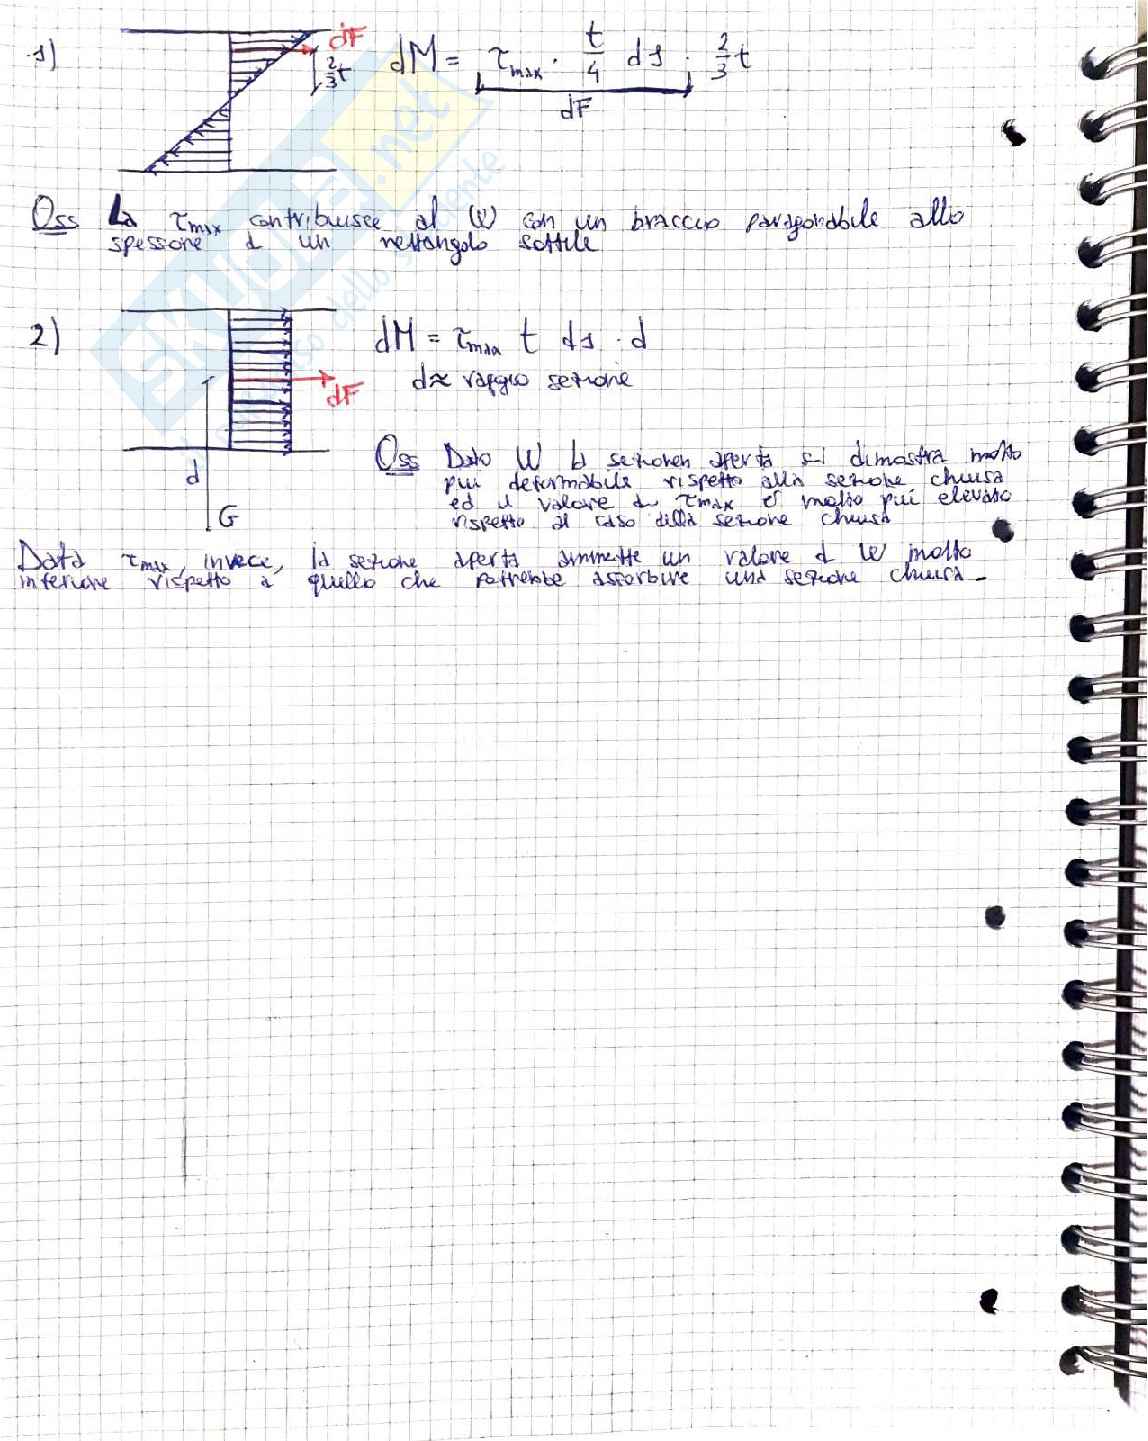 1) dF 2/3 t dM = τmax · t/4 ds · 2/3 t
dF
Oss La τmax contribuisce al W con un braccio paragonabile allo
spessore d un rettangolo sottile
2) dM = τmax t ds · d
d ≈ raggio sezione
dF
d
G
Oss Dato W la sezionen aperta si dimostra molto
piu deformabile rispetto alla sezione chiusa
ed il valore di τmax e' molto piu elevato
rispetto al caso della sezione chiusa
Data τmax, invece, la sezione aperta ammette un valore d W molto
inferiore rispetto a quello che potrebbe assorbire una sezione chiusa.
SKUOLA.net